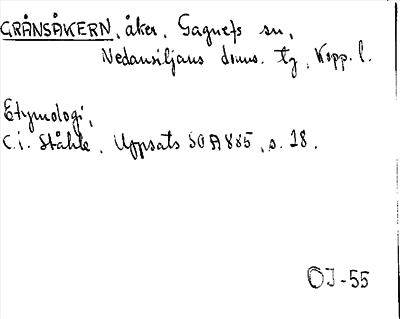 GRÅNSÅKERN, åker, Gagnefs sn,
Nedansiljans doms. tg, Kopp. l.
Etymologi,
C.i. Ståhle, Uppsats SOA 885, s. 18.
OJ-55